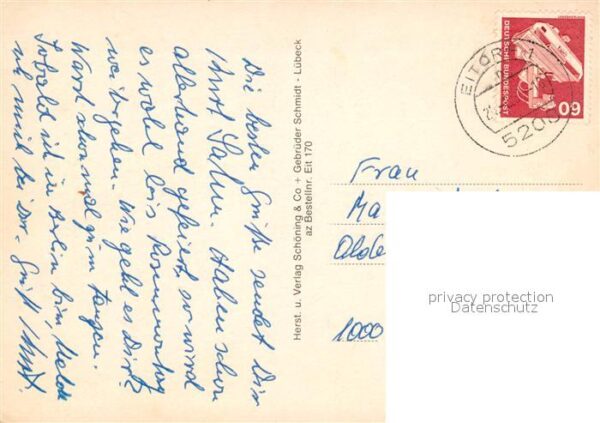 Die besten Grüße sendet Dir
Kurt Hahn. Haben schon
allerhand gefeiert, so wird
es wohl bis Rosenmontag
weitergehen. Wie geht es Dir?
Warst schon mal zum Tanzen.
Sobald ich in Berlin bin, melde
ich mich bei Dir. Gruß Kurt.
Herst. u. Verlag Schöning & Co + Gebrüder Schmidt - Lübeck
az Bestellnr. Eit 170
DEUTSCHE BUNDESPOST
60
EITORF 1
5208
Frau
Ma
Alde
1000
privacy protection
Datenschutz